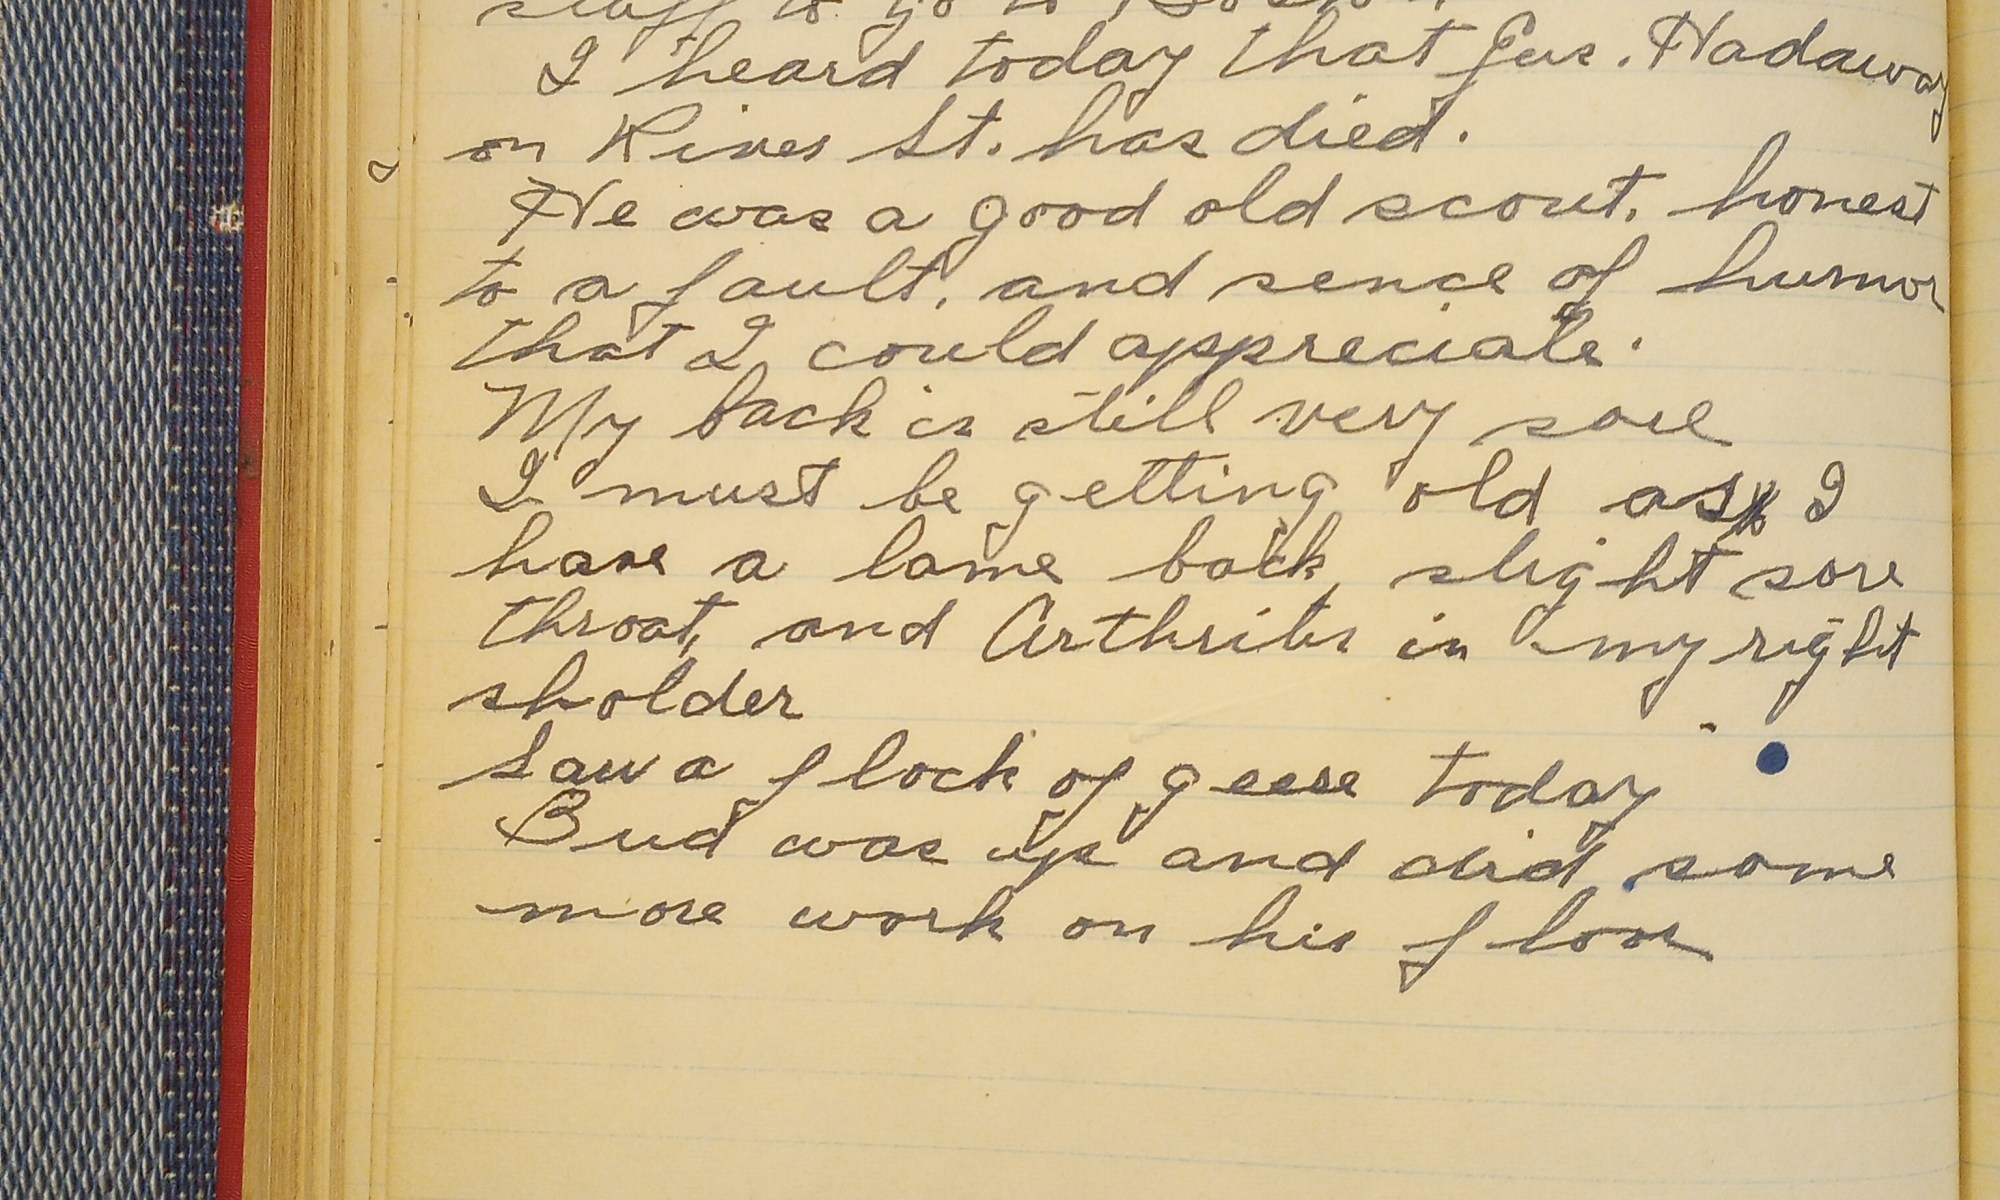 staff to go to Boston
I heard today that Gus. Hadaway
on River St. has died.
He was a good old scout, honest
to a fault, and sence of humor
that I could appreciate.
My back is still very sore
I must be getting old as I
have a lame back, slight sore
throat, and Arthritis in my right
sholder
Saw a flock of geese today
Bud was up and did some
more work on his floor